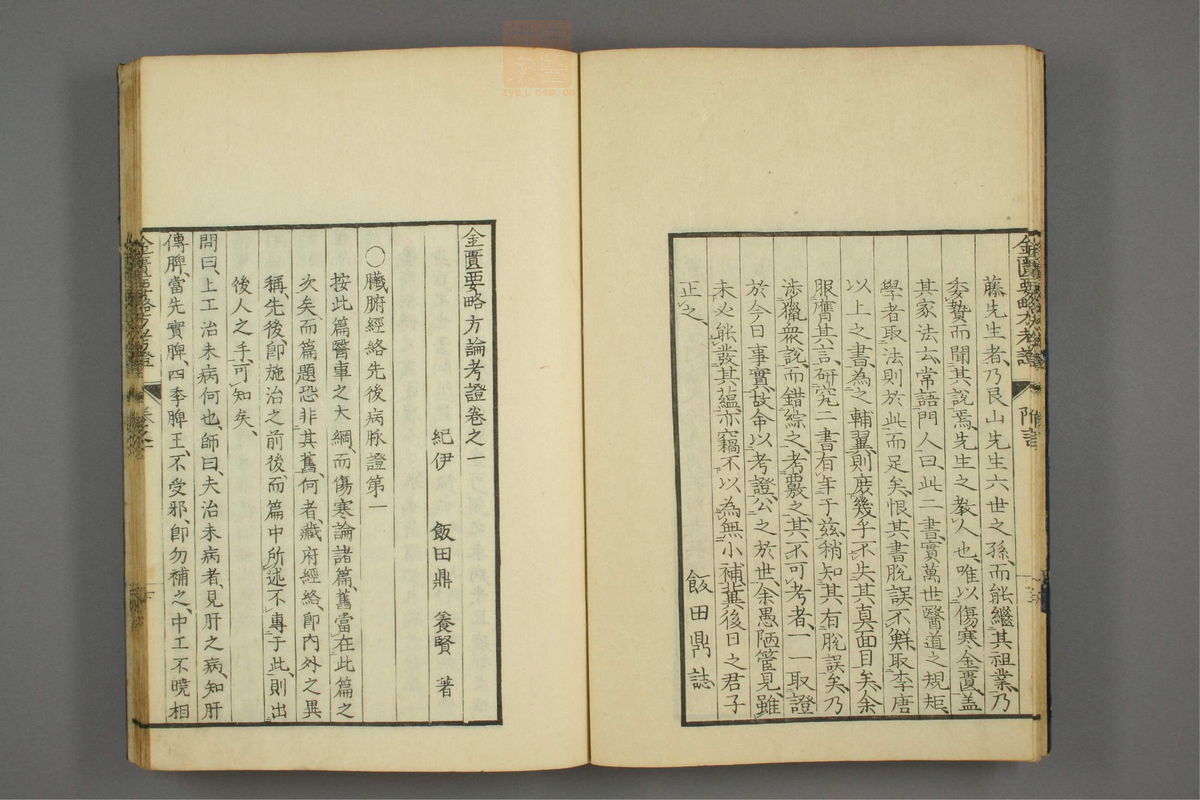 藤先生者乃艮山先生六世之孫、而能繼其祖業、乃
委贄而聞其說焉、先生之教人也、唯以傷寒金匱、蓋
其家法云、常語門人曰、此二書、實萬世醫道之規矩、
學者取法則於此而足矣、恨其書脫誤不鮮、取李唐
以上之書、為之輔翼、則庶幾乎不失其真面目矣、余
服膺其言、研究二書有年于玆、稍知其有脫誤矣、乃
涉獵衆說、而錯綜之、考覈之、其不可考者、一一取證
於今日事實、故命以考證、公之於世、余愚陋管見、雖
未必能發其蘊、亦竊不以為無小補、冀後日之君子
正之、
飯田鼎誌
金匱要略方論考證卷之一
紀伊 飯田鼎 養賢 著
○臟腑經絡先後病脉證第一
按此篇醫車之大綱、而傷寒論諸篇、舊當在此篇之
次矣、而篇題恐非其舊、何者藏府經絡、卽內外之異
稱、先後、卽施治之前後、而篇中所述、不專于此、則出
後人之手、可知矣、
問曰、上工治未病何也、師曰、夫治未病者、見肝之病、知肝
傳脾、當先實脾、四季脾王、不受邪、卽勿補之、中工不曉相